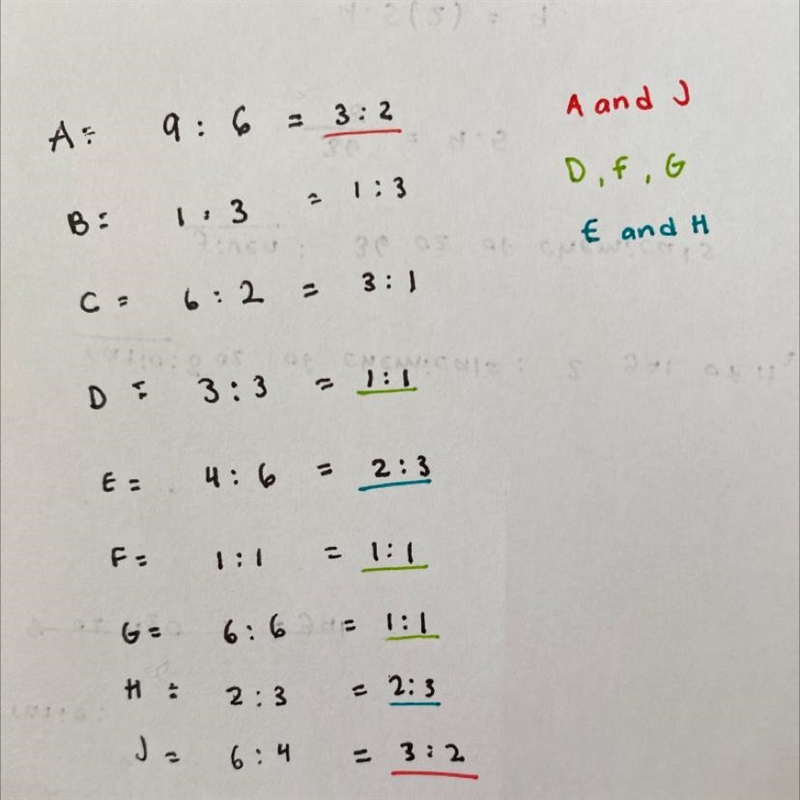 A = 9 : 6 = 3 : 2
B = 1 : 3 = 1 : 3
C = 6 : 2 = 3 : 1
D = 3 : 3 = 1 : 1
E = 4 : 6 = 2 : 3
F = 1 : 1 = 1 : 1
G = 6 : 6 = 1 : 1
H = 2 : 3 = 2 : 3
J = 6 : 4 = 3 : 2
A and J
D, F, G
E and H